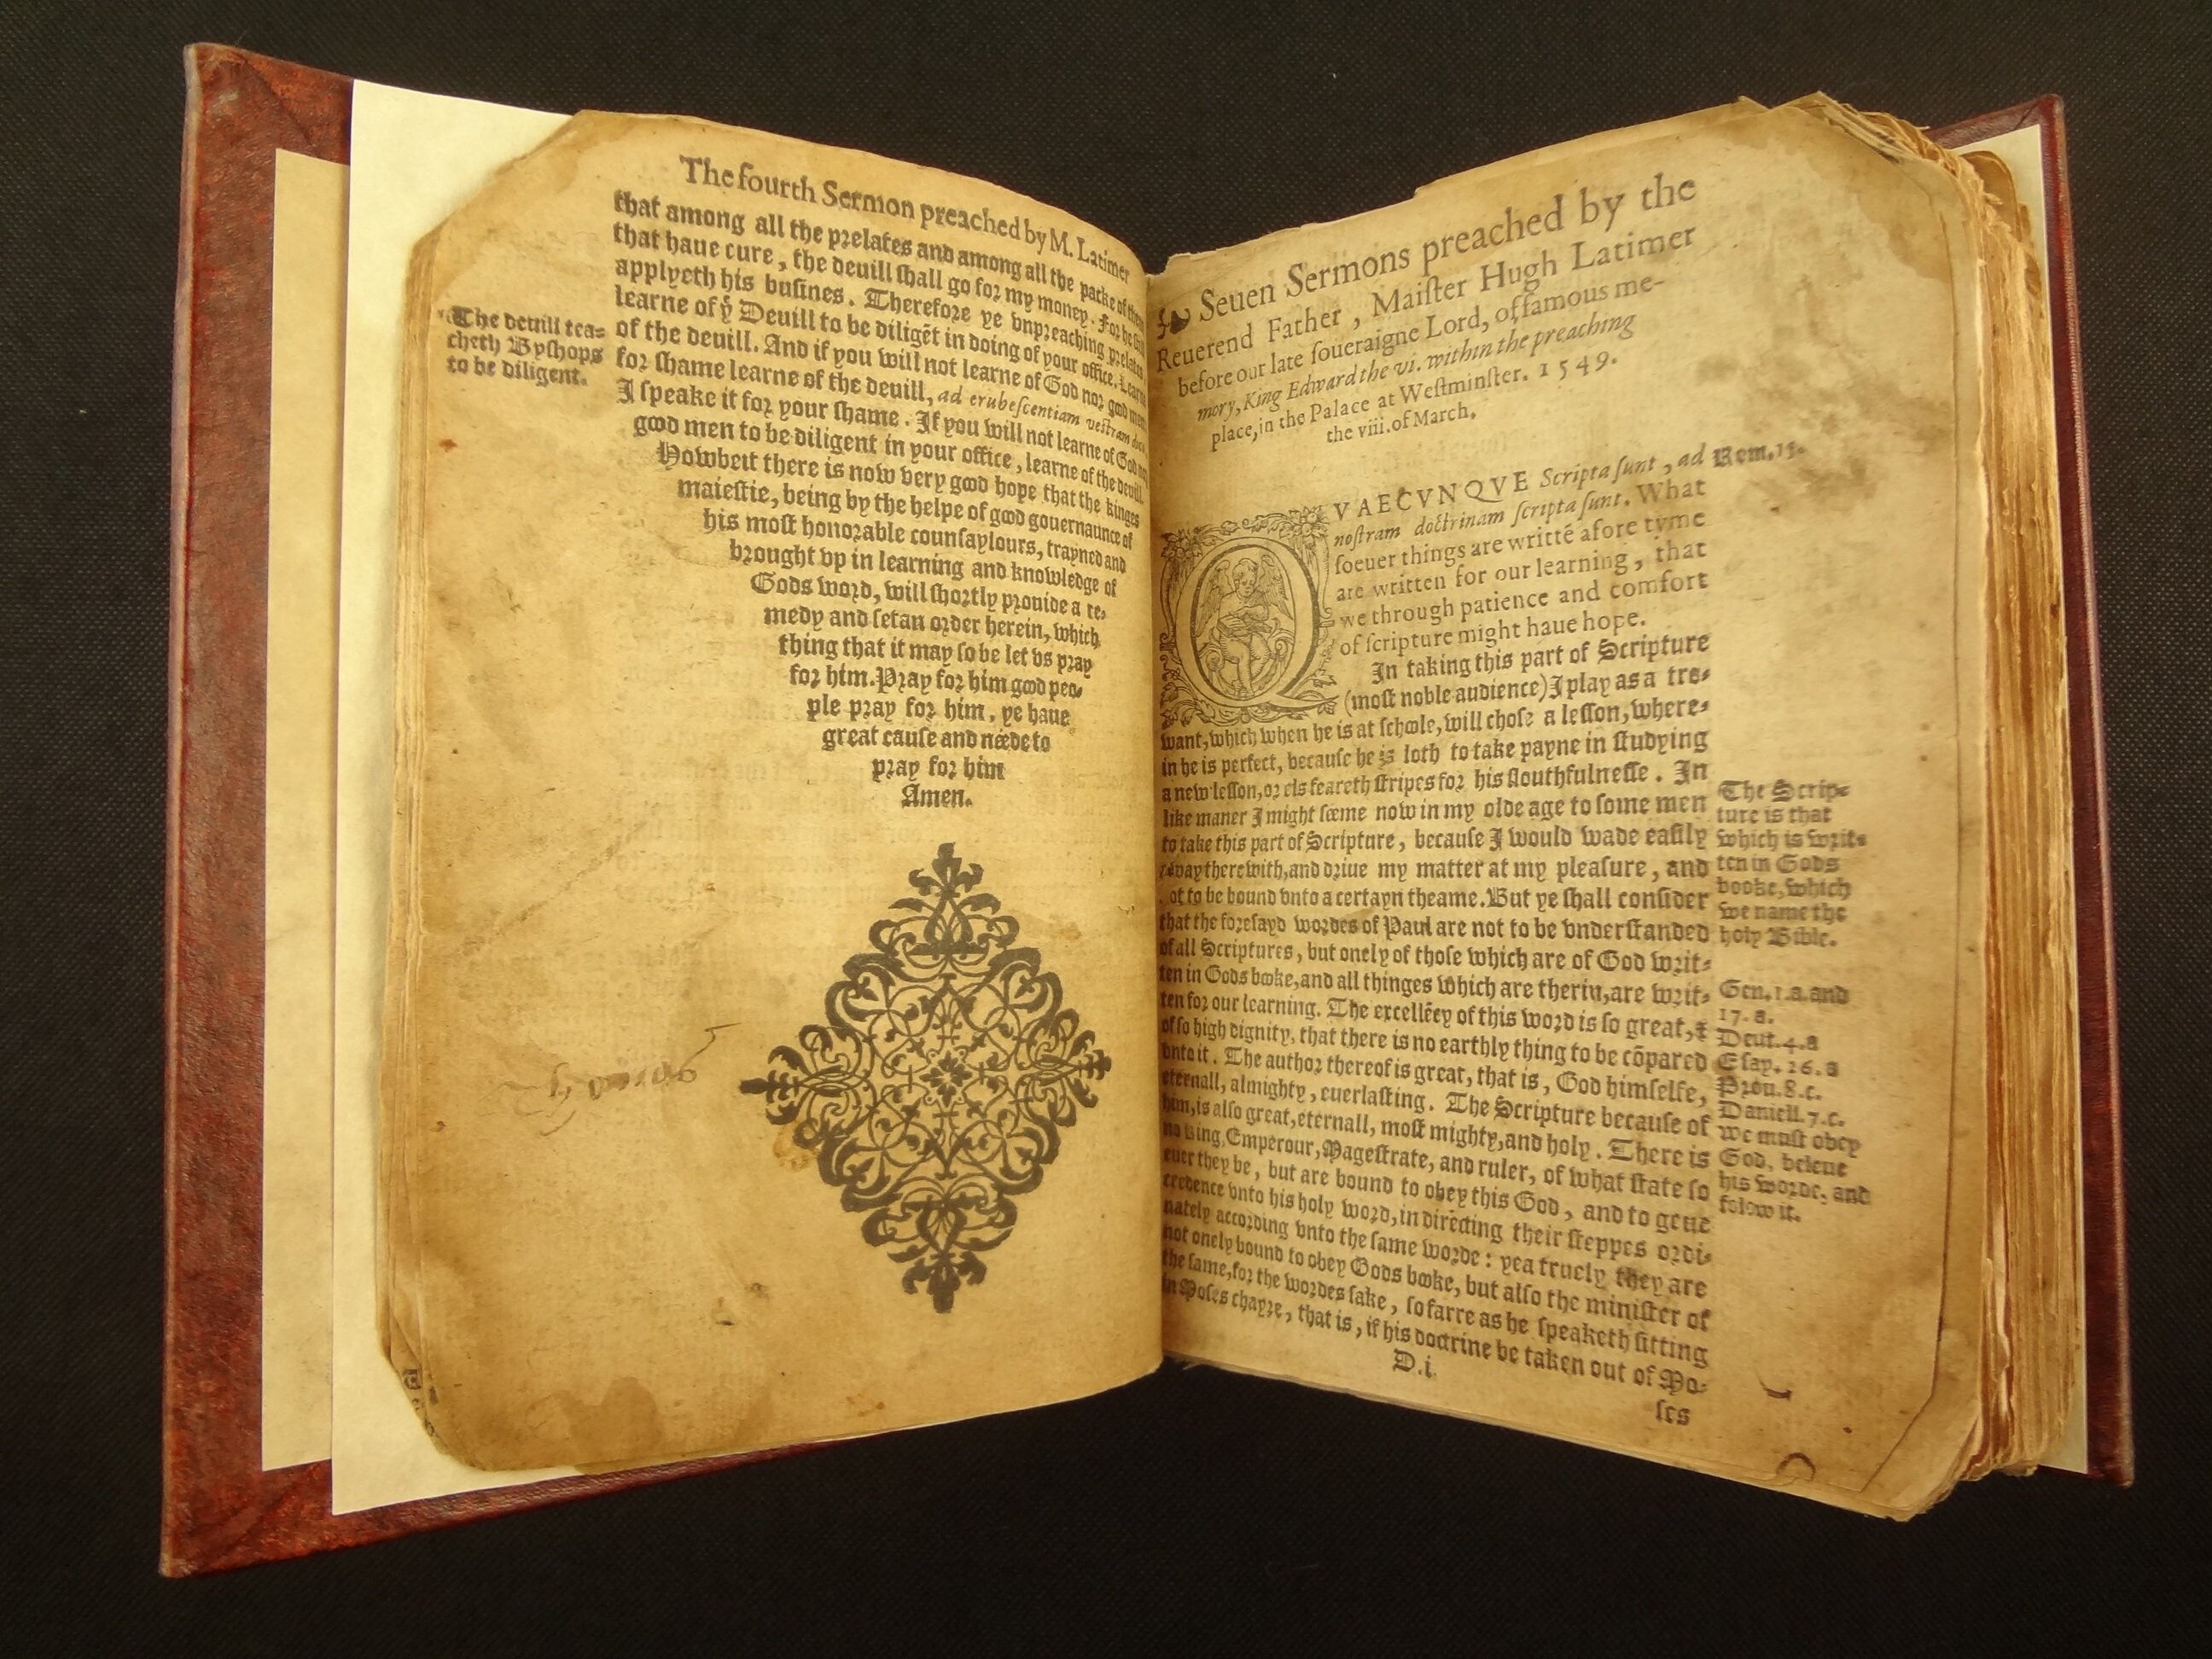 The fourth Sermon preached by M. Latimer
that among all the prelates and among all the packe of them
that haue cure, the deuill shall go for my money. For he still
applyeth his busines. Therefore ye vnpreaching prelates
learne of yͤ Deuill to be diligēt in doing of your office. Learne
of the deuill. And if you will not learne of God nor good men:
for shame learne of the deuill, ad erubescentiam vestram dico,
I speake it for your shame. If you will not learne of God nor
good men to be diligent in your office, learne of the deuill.
Howbeit there is now very good hope that the kinges
maiestie, being by the helpe of good gouernaunce of
his most honorable counsaylours, trayned and
brought vp in learning and knowledge of
Gods word, will shortly prouide a re-
medy and set an order herein, which
thing that it may so be let vs pray
for him. Pray for him good peo-
ple pray for him, ye haue
great cause and neede to
pray for him
Amen.
The deuill tea-
cheth Byshops
to be diligent.
Seuen Sermons preached by the
Reuerend Father, Maister Hugh Latimer
before our late soueraigne Lord, of famous me-
mory, King Edward the vi. within the preaching
place, in the Palace at Westminster. 1549.
the viii. of March.
QVAECVNQVE Scripta sunt, ad
nostram doctrinam scripta sunt. What
soeuer things are writtē afore tyme
are written for our learning, that
we through patience and comfort
of scripture might haue hope.
In taking this part of Scripture
(most noble audience) I play as a tre-
want, which when he is at schoole, will chose a lesson, where-
in he is perfect, because he is loth to take payne in studying
a new lesson, or els feareth stripes for his slouthfulnesse. In
like maner I might seeme now in my olde age to some men
to take this part of Scripture, because I would wade easily
away therewith, and driue my matter at my pleasure, and
ot to be bound vnto a certayn theame. But ye shall consider
that the foresayd wordes of Paul are not to be vnderstanded
of all Scriptures, but onely of those which are of God writ-
ten in Gods booke, and all thinges which are therin, are writ-
ten for our learning. The excellēcy of this word is so great, &
of so high dignity, that there is no earthly thing to be cōpared
vnto it. The author thereof is great, that is, God himselfe,
eternall, almighty, euerlasting. The Scripture because of
him, is also great, eternall, most mighty, and holy. There is
no king, Emperour, Magestrate, and ruler, of what state so
euer they be, but are bound to obey this God, and to geue
credence vnto his holy word, in directing their steppes ordi-
nately according vnto the same worde: yea truely they are
not onely bound to obey Gods booke, but also the minister of
the same, for the wordes sake, so farre as he speaketh sitting
in Moses chayre, that is, if his doctrine be taken out of Mo-
D.i.
ses
Rom. 15.
The Scrip-
ture is that
which is writ-
ten in Gods
booke, which
we name the
holy Bible.
Gen. 1. a. and
17. a.
Deut. 4. a
Esay. 26. a
Prou. 8. c.
Daniell. 7. c.
we must obey
God, beleue
his worde, and
folow it.